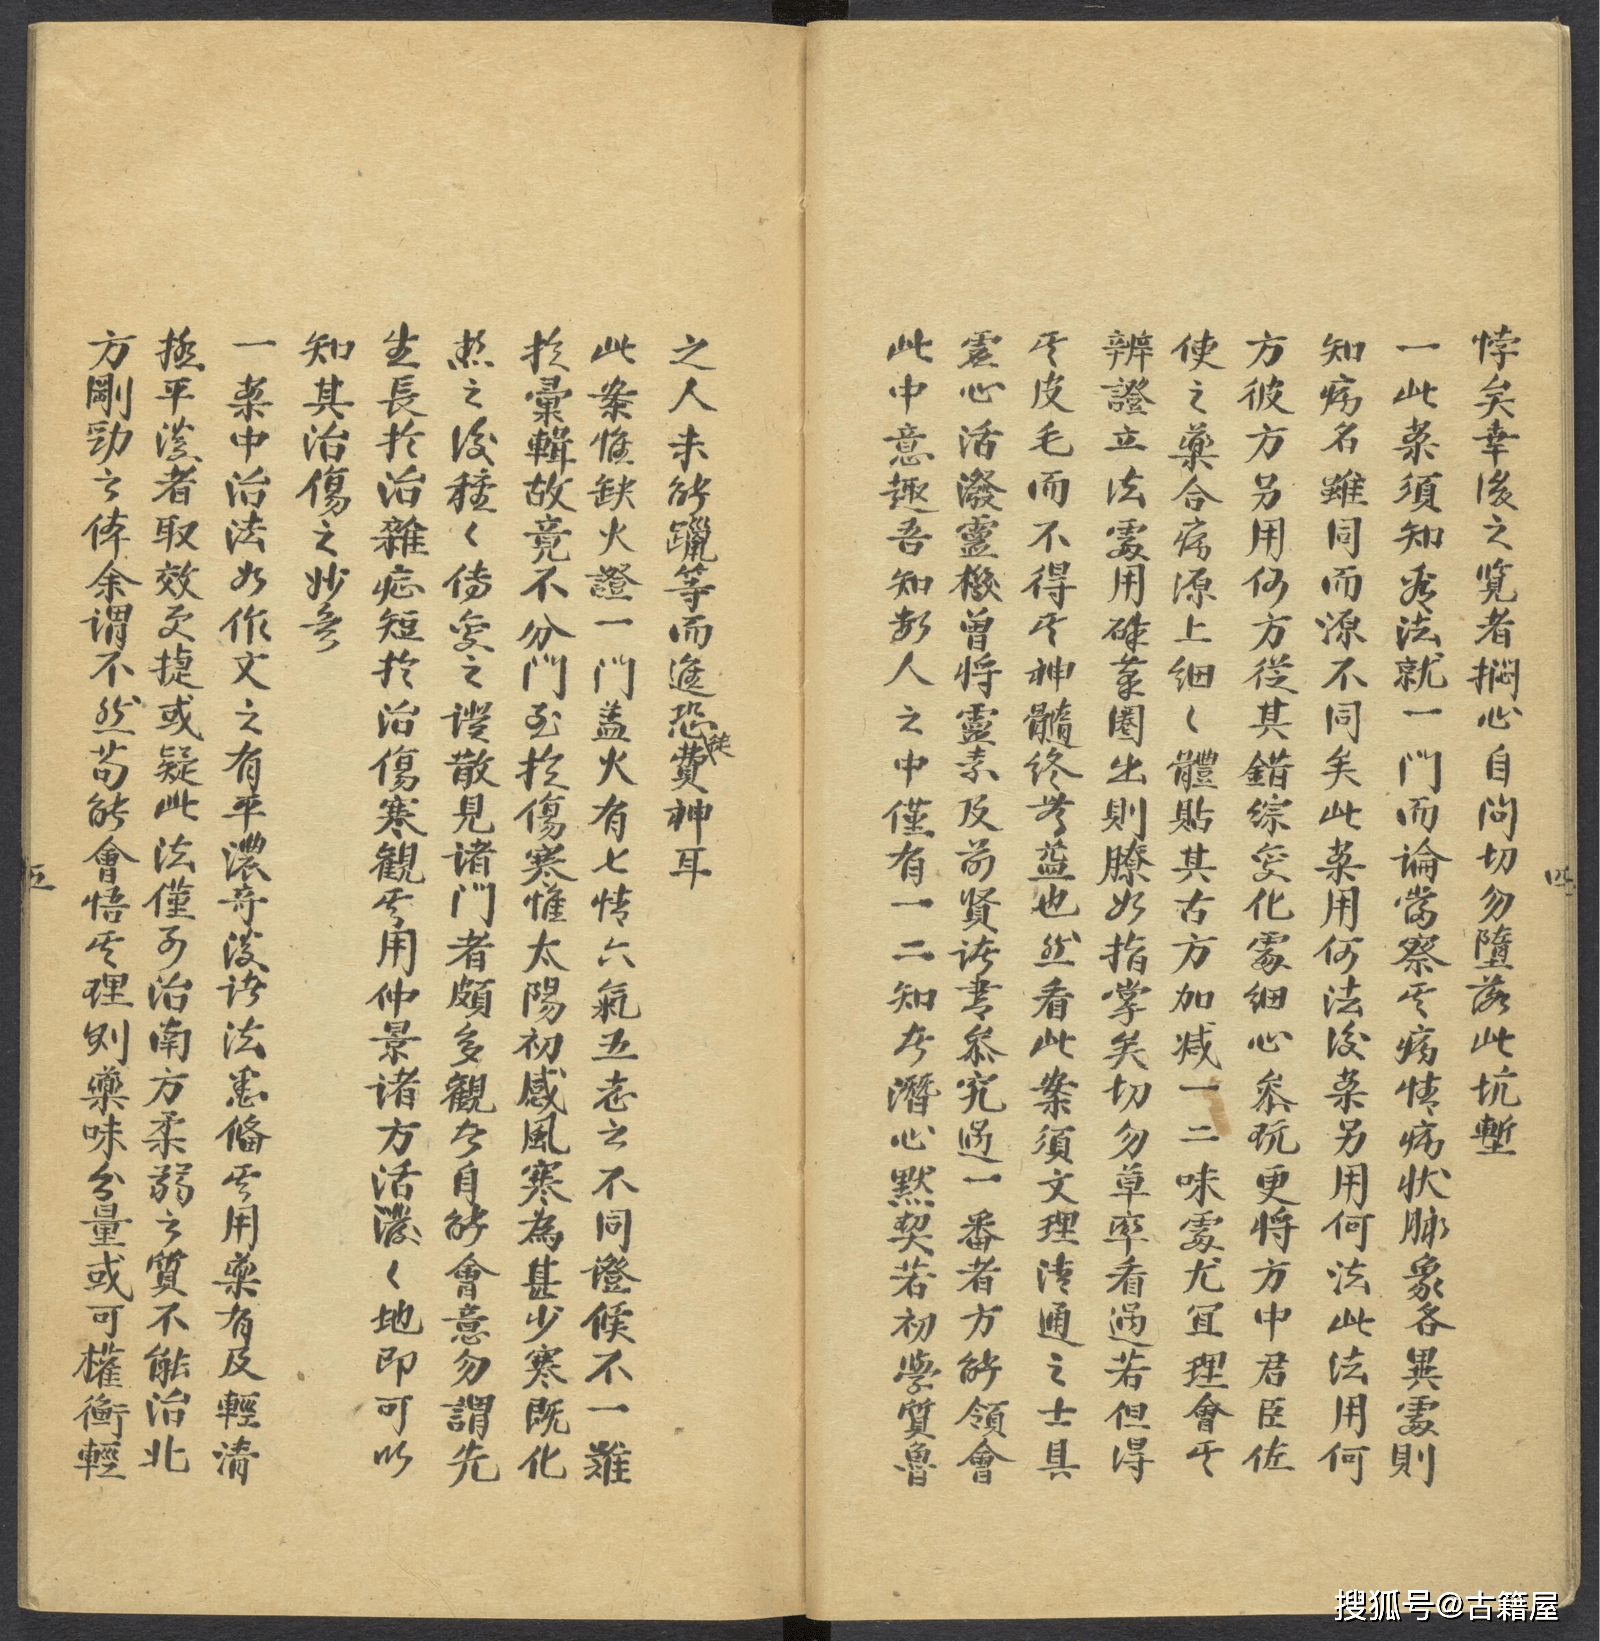 悖矣幸後之覽者捫心自問切勿墮落此坑塹
一此案須知看法就一門而論當察其病情病狀脉象各異處則
知病名雖同而源不同矣此案用何法後案另用何法此法用何
方彼方另用何方從其錯綜變化處細心叅玩更將方中君臣佐
使之藥合病源上細〻體貼其古方加减一二味處尤宜理會其
辨證立法處用硃筆圈出則瞭如指掌矣切勿草率看過若但得
其皮毛而不得其神髓終無益也然看此案須文理清通之士具
虛心活潑靈機曾將靈素及前賢諸書叅究過一番者方能領會
此中意趣吾知數人之中僅有一二知者潛心默契若初學質魯
四
之人未能躐等而進恐徒費神耳
此案惟缺火證一門盖火有七情六氣五志之不同證候不一難
於彙輯故竟不分門至於傷寒惟太陽初感風寒為甚少寒既化
熱之後種〻傳變之證散見諸門者頗多觀者自能會意勿謂先
生長於治雜症短於治傷寒觀其用仲景諸方活潑〻地即可以
知其治傷之妙矣
一案中治法如作文之有平濃奇淡諸法悉備其用藥有及輕清
極平淡者取效更捷或疑此法僅可治南方柔弱之質不能治北
方剛勁之体余謂不然苟能會悟其理則藥味分量或可權衡輕
五
搜狐号@古籍屋